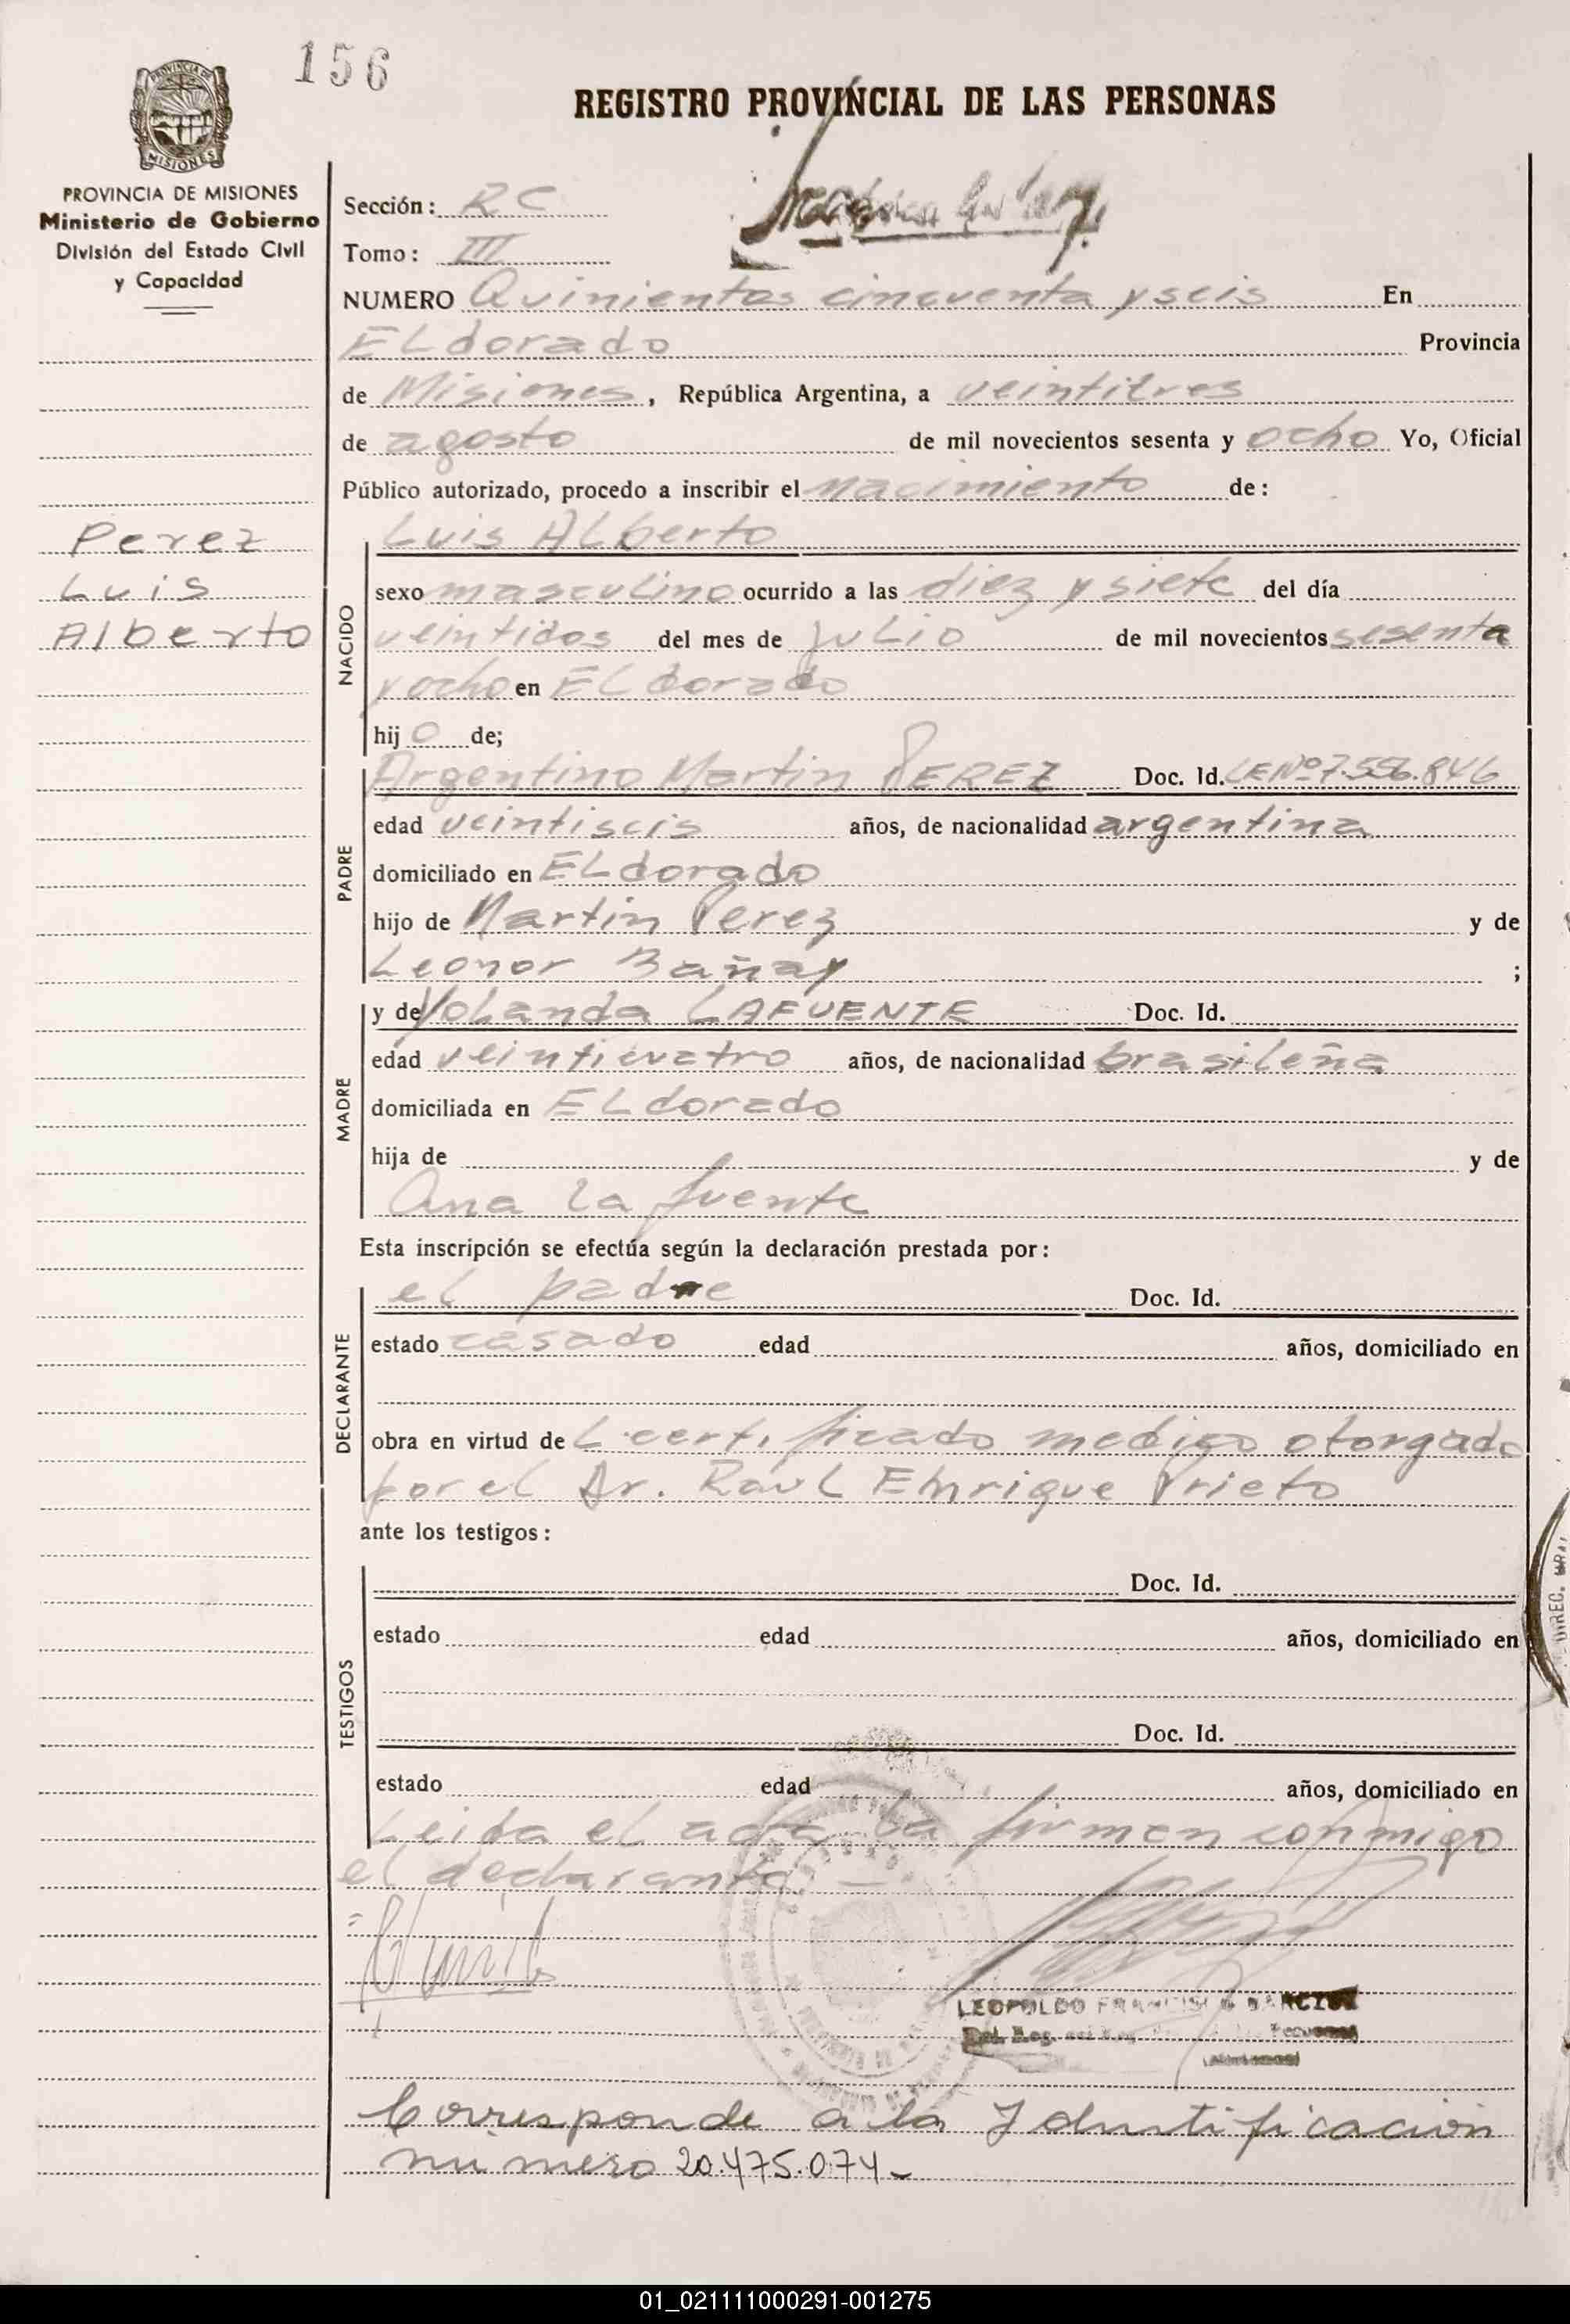 156
REGISTRO PROVINCIAL DE LAS PERSONAS
PROVINCIA DE MISIONES
Ministerio de Gobierno
División del Estado Civil
y Capacidad
Sección: RC
Tomo: III
NUMERO Quinientos cincuenta y seis En
ELdorado Provincia
de Misiones, República Argentina, a veintitres
de agosto de mil novecientos sesenta y ocho Yo, Oficial
Público autorizado, procedo a inscribir el nacimiento de:
Perez
Luis
Alberto
NACIDO
Luis ALberto
sexo masculino ocurrido a las diez y siete del día
veintidos del mes de juLio de mil novecientos sesenta
y ocho en ELdorado
hijo de;
PADRE
Argentino Martin PEREZ Doc. Id. LE Nº 7.556.846
edad veintiseis años, de nacionalidad argentina
domiciliado en ELdorado
hijo de Martin Perez y de
Leonor Bañay ;
MADRE
y de YoLanda LAFUENTE Doc. Id.
edad veinticuatro años, de nacionalidad brasileña
domiciliada en ELdorado
hija de y de
Ana La fuente
Esta inscripción se efectúa según la declaración prestada por:
DECLARANTE
el padre Doc. Id.
estado casado edad años, domiciliado en
obra en virtud de L certificado medico otorgado
por el Dr. RauL Enrique Prieto
ante los testigos:
TESTIGOS
Doc. Id.
estado edad años, domiciliado en
Doc. Id.
estado edad años, domiciliado en
Leida el acta la firman conmigo
el declarante. —
LEOPOLDO FRANCISCO
Corresponde a la Identificación
numero 20.475.074-
DIREC.
01_021111000291-001275